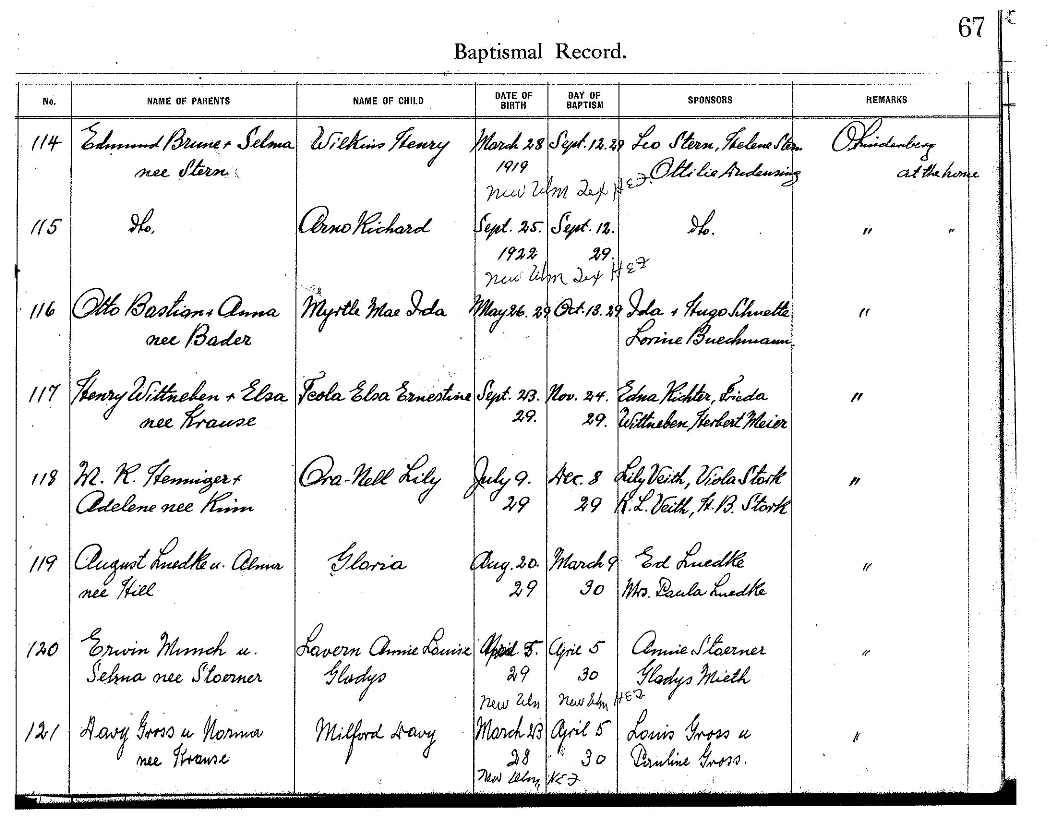 67
Baptismal Record.
No. NAME OF PARENTS NAME OF CHILD DATE OF BIRTH DAY OF BAPTISM SPONSORS REMARKS
114 Edmund Brune + Selma Wilkins Henry March 28 Sept. 12. 29 Leo Stern, Thelene Stern O Lindenberg
nee Stern 1919 Ottilie at the home
New Ulm Tex HEZ
115 do. Arno Richard Sept. 25. Sept. 12. do. " "
1922 29.
New Ulm Tex HEZ
116 Otto Bastian + Anna Myrtle Mae Ida May 26. 29 Oct. 13. 29 Ida + Hugo Schuette "
nee Bader Lorine Buechmann
117 Henry Wittneben + Elsa Teola Elsa Ernestine Sept. 23. Nov. 24. Edna Richter, Frieda "
nee Krause 29. 29. Wittneben, Herbert Meier
118 W. K. Henniger + Ora-Nell Lily July 9. Dec. 8 Lily Veith, Viola Stork "
Adelene nee 29 29 R. L. Veith, H. B. Stork
119 August Luedke u. Alma Gloria Aug. 20. March 9 Ed Luedke "
nee Hill 29 30 Mrs. Paula Luedke
120 Erwin Munch u. Lavern Annie Louise April 5. April 5 Annie Stoerner "
Selma nee Stoerner Gladys 29 30 Gladys Mieth
New Ulm New Ulm HEZ
121 Davy Gross u Norma Milford Davy March 23 April 5 Louis Gross u "
nee Krause 28 30 Pauline Gross.
New Ulm, HEZ